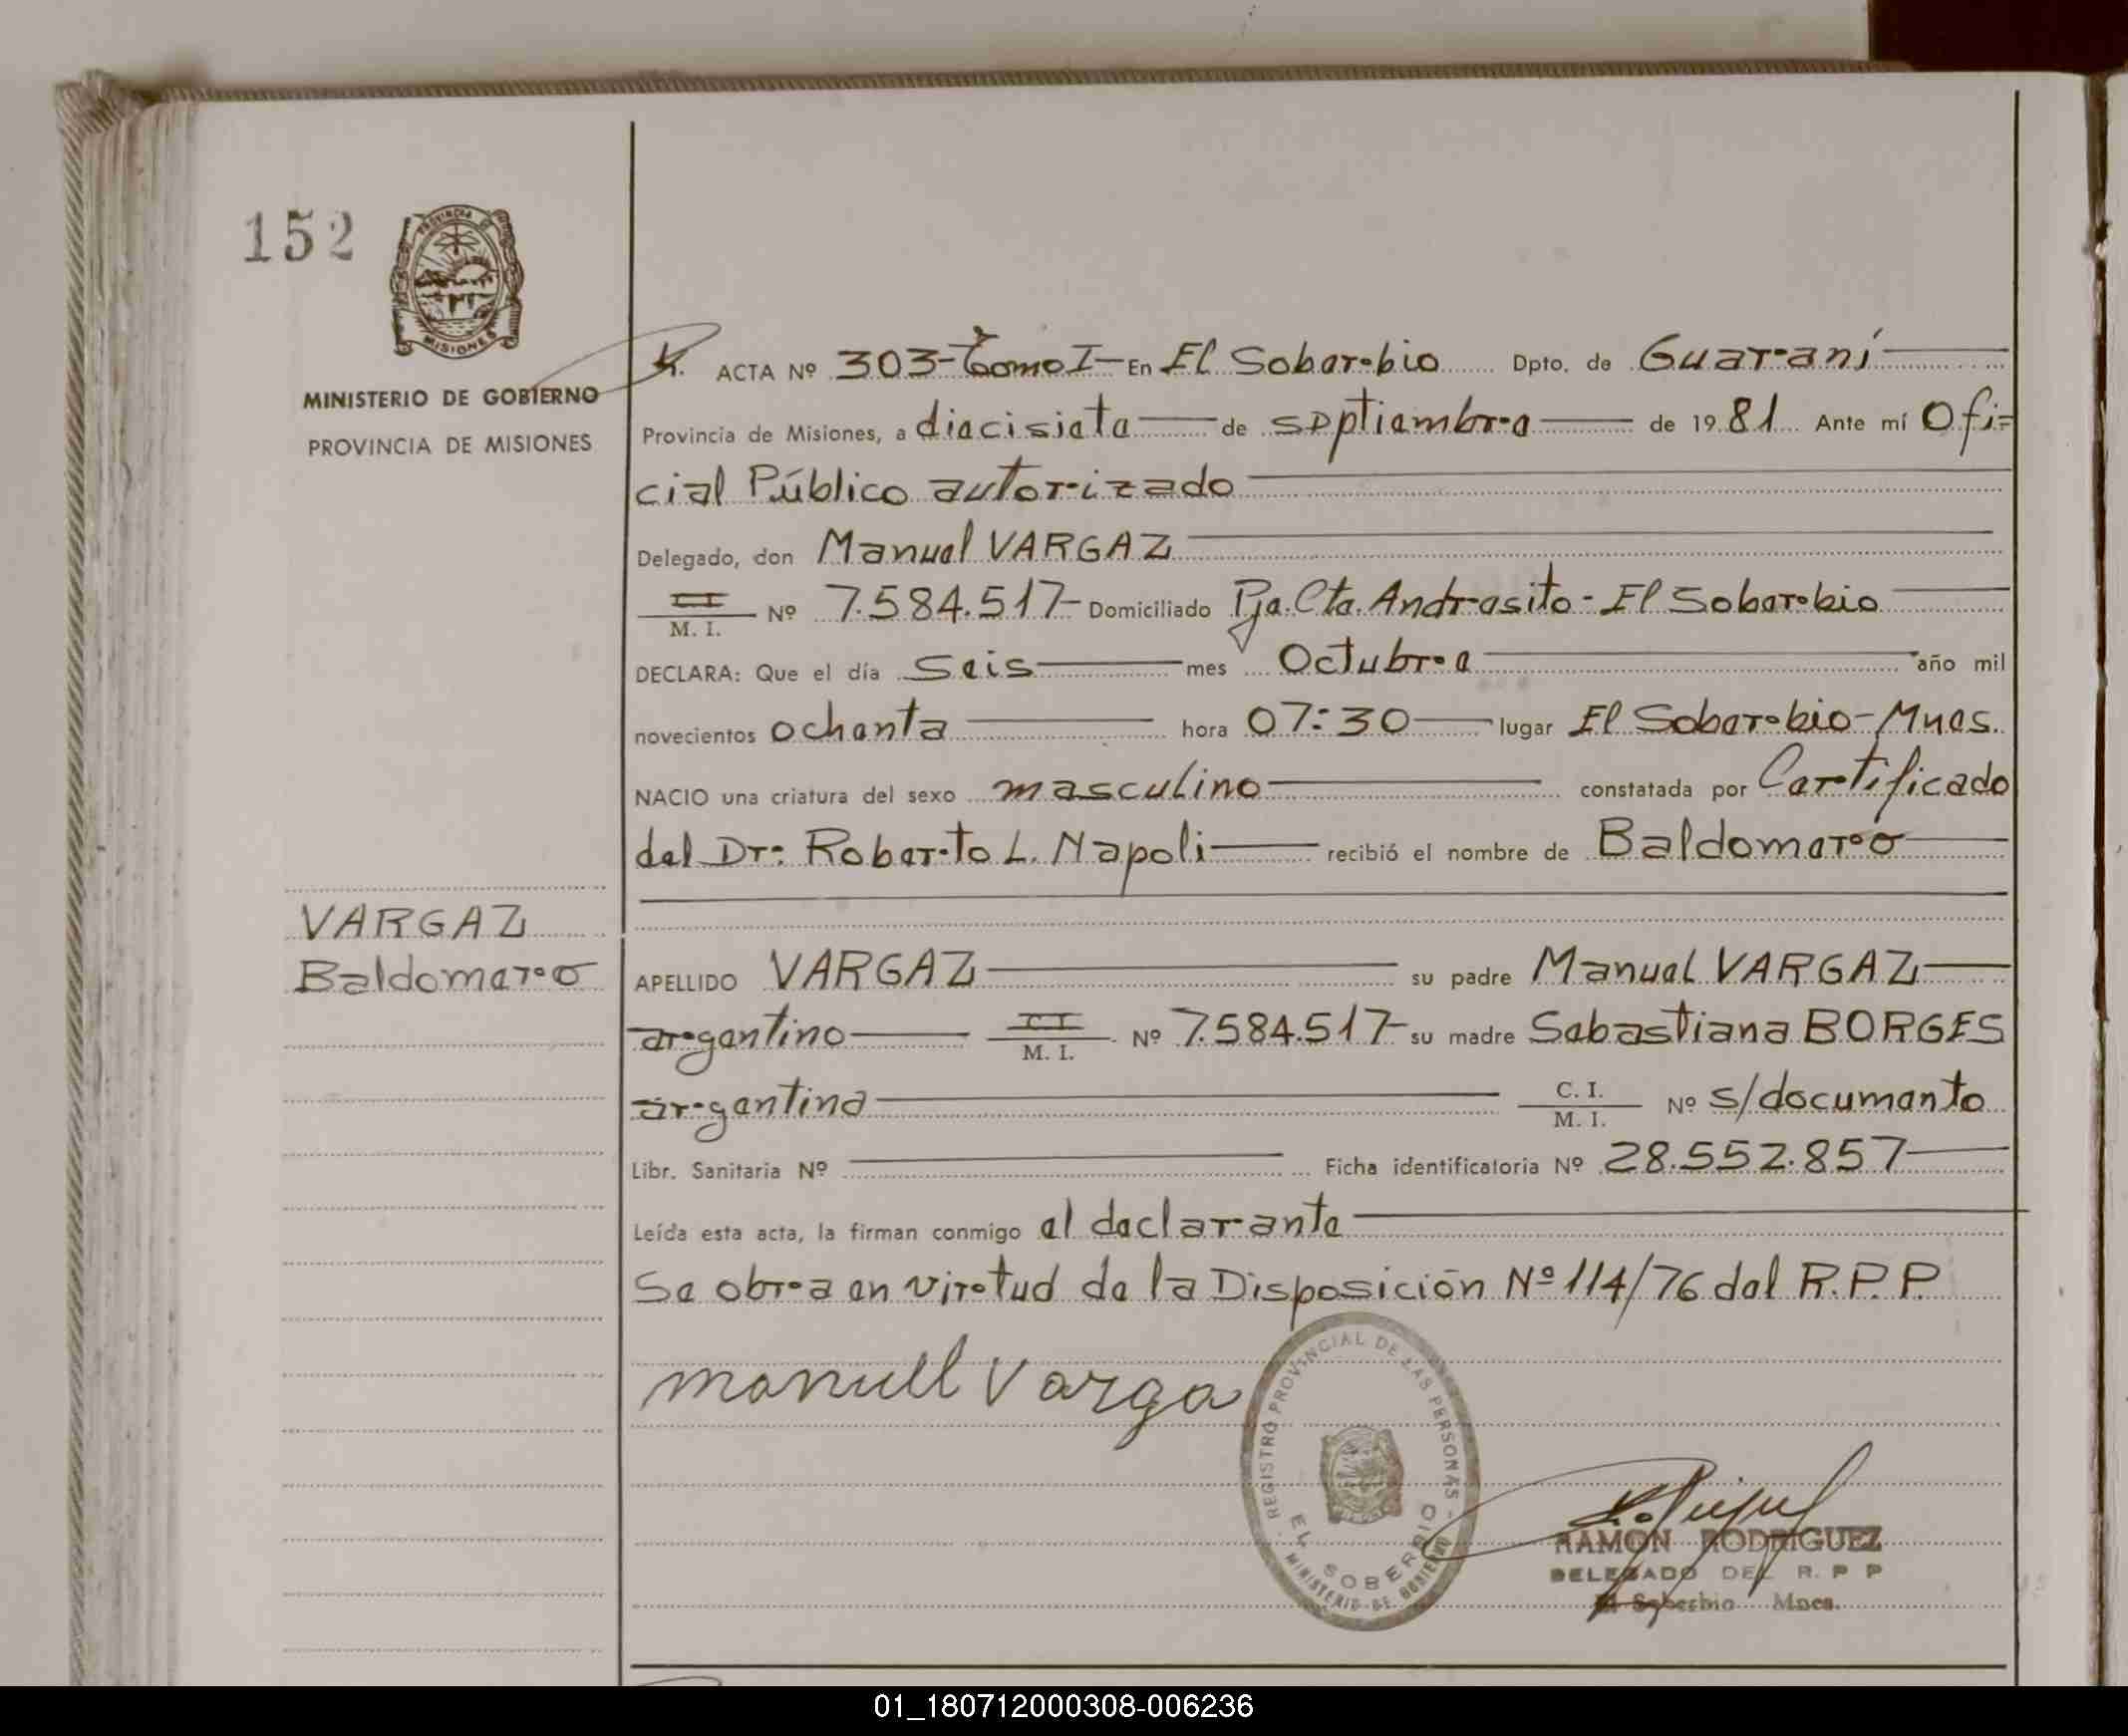 152
PROVINCIA DE
MISIONES
MINISTERIO DE GOBIERNO
PROVINCIA DE MISIONES
ACTA Nº 303-Tomo I- En El Soberbio Dpto. de Guaraní
Provincia de Misiones, a diecisiete de septiembre de 1981 Ante mí Ofi=
cial Público autorizado
Delegado, don Manuel VARGAZ
M. I. Nº 7.584.517- Domiciliado Pje. Cte. Andresito - El Soberbio
DECLARA: Que el día seis mes Octubre año mil
novecientos ochenta hora 07:30 lugar El Soberbio-Mnes.
NACIO una criatura del sexo masculino constatada por Certificado
del Dr: Roberto L. Napoli recibió el nombre de Baldomero
VARGAZ
Baldomero
APELLIDO VARGAZ su padre Manuel VARGAZ
argentino M. I. Nº 7.584.517- su madre Sebastiana BORGES
argentina C. I. M. I. Nº s/documento
Libr. Sanitaria Nº Ficha identificatoria Nº 28.552.857
Leída esta acta, la firman conmigo el declarante
Se obra en virtud de la Disposición Nº 114/76 del R.P.P.
manuell Varga
REGISTRO PROVINCIAL DE LAS PERSONAS
EL SOBERBIO
MINISTERIO DE GOBIERNO
RAMON RODRIGUEZ
DELEGADO DEL R. P P
El Soberbio Mnes.
01_180712000308-006236